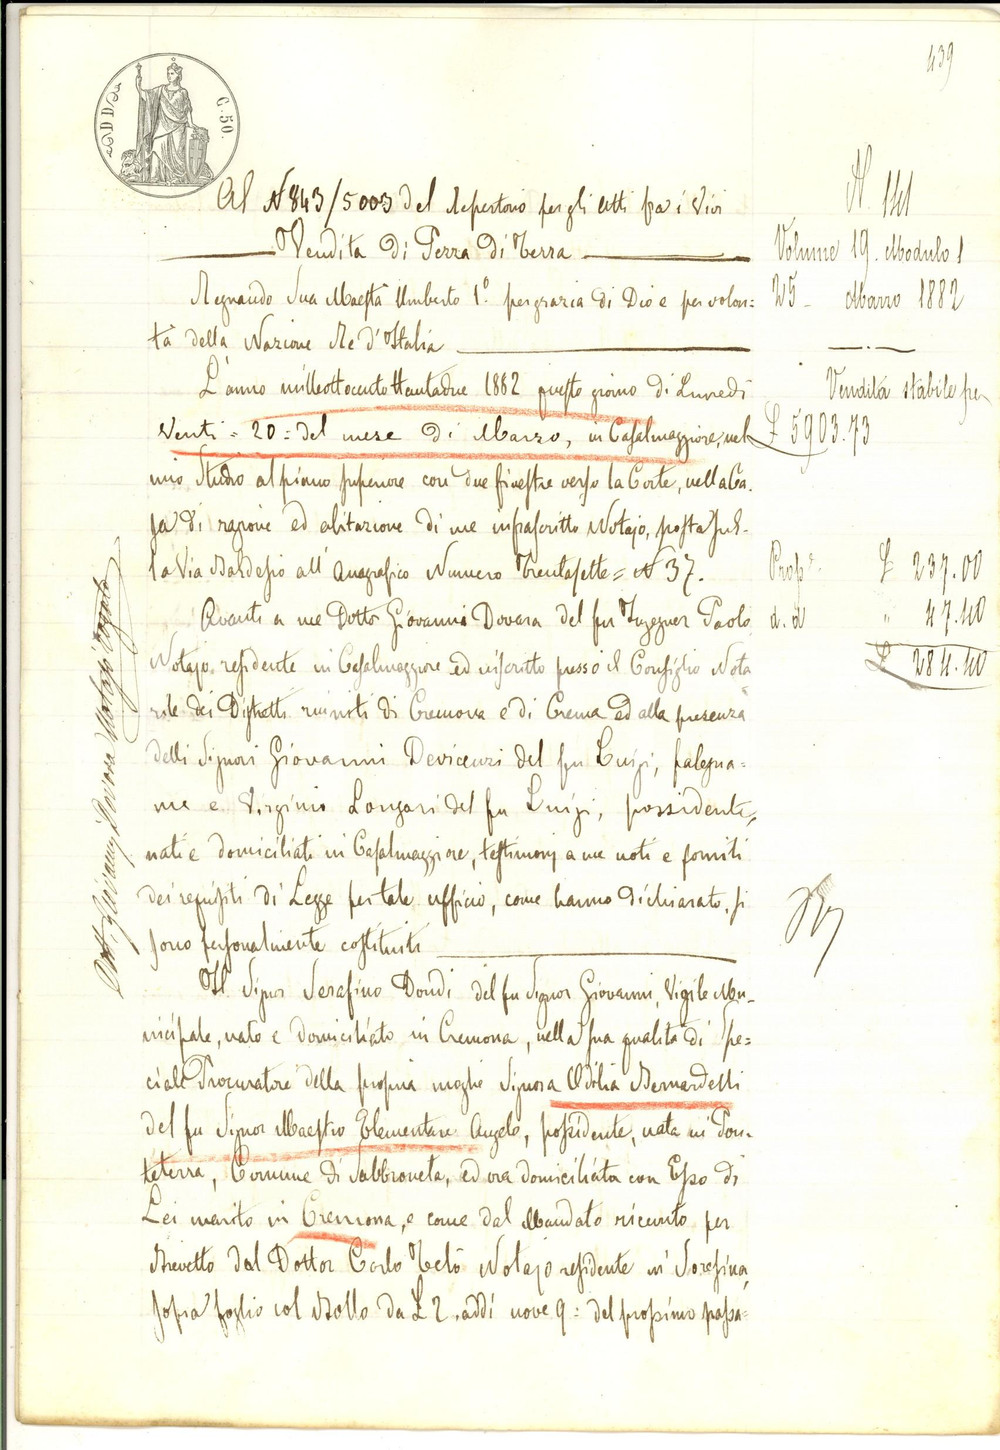 439
C. 50.
Al N 843/5003 del Repertorio per gli Atti fra i Vivi
Vendita di Pezza di Terra
Regnando Sua Maestà Umberto 1.° per grazia di Dio e per volon=
tà della Nazione Re d'Italia
L'anno milleottocentottantadue 1882 questo giorno di Lunedì
Venti = 20 = del mese di Marzo, in Casalmaggiore, nel
mio Studio al piano superiore con due finestre verso la Corte, nella Ca=
sa di ragione ed abitazione di me infrascritto Notajo, posta sul=
la Via Baldesio all'Anagrafico Numero Trentasette = N 37.
Avanti a me Dottor Giovanni Dovara del fu Ingegner Paolo
Notajo residente in Casalmaggiore ed inscritto presso il Consiglio Nota
rile dei Distretti riuniti di Cremona e di Crema ed alla presenza
delli Signori Giovanni Devicenzi del fu Luigi, falegna=
me e Virginio Longari del fu Luigi, possidente,
nati e domiciliati in Casalmaggiore, testimonj a me noti e forniti
dei requisiti di Legge per tale ufficio, come hanno dichiarato, si
sono personalmente costituiti
Il Signor Serafino Dondi del fu Signor Giovanni, Vigile Mu=
nicipale, nato e domiciliato in Cremona, nella sua qualità di Spe=
ciale Procuratore della propria moglie Signora Odilia Bernardelli
del fu Signor Maestro Elementare Angelo, possidente, nata in Pon=
teterra, Comune di Sabbioneta, ed ora domiciliata con Esso di
Lei marito in Cremona, e come dal Mandato ricevuto per
Brevetto dal Dottor Carlo Telò Notajo residente in Soresina
sopra foglio col Bollo da L 2. addì nove 9 = del prossimo passa=
N. 141
Volume 19. Modulo 1
25 - Marzo 1882
Vendita stabile per
L 5903.73
Prop.e L 237.00
d. d " 47.40
L 284.40
Dott. Giovanni Dovara Notajo Rogato